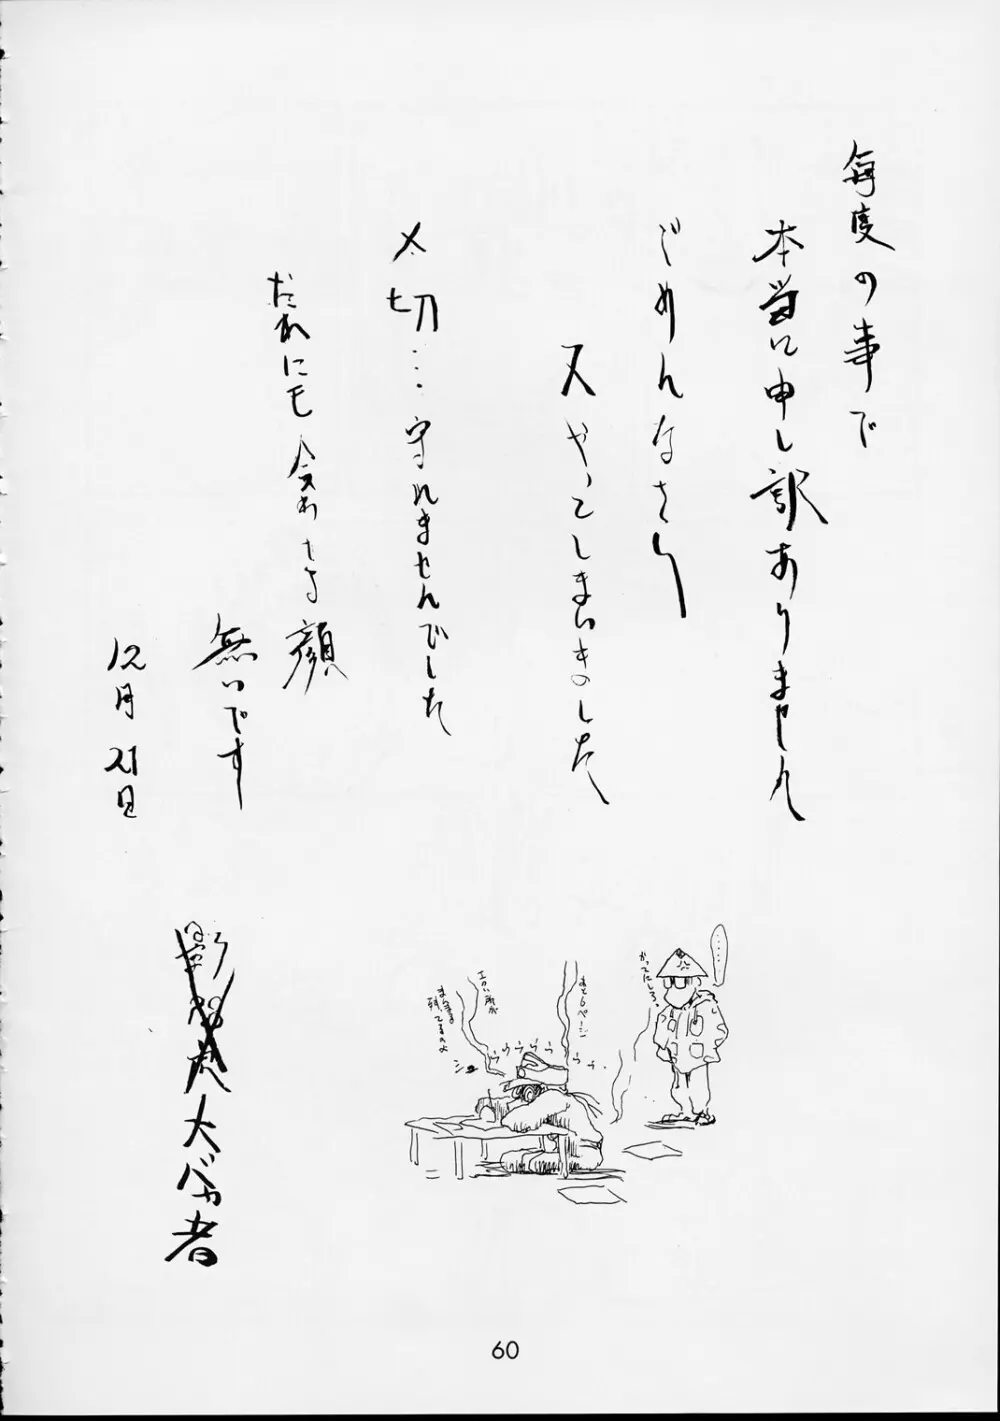 毎度の事で
本当に申し訳ありません
ごめんなさい
又やってしまいましたのした
〆切…守れませんでした
だれにも会わす顔
無いです
12月21日
大バカ者
……
かってにしろ。
あと6ページ
うううううう
エロい所が
まだまだ
残ってるのよ
60